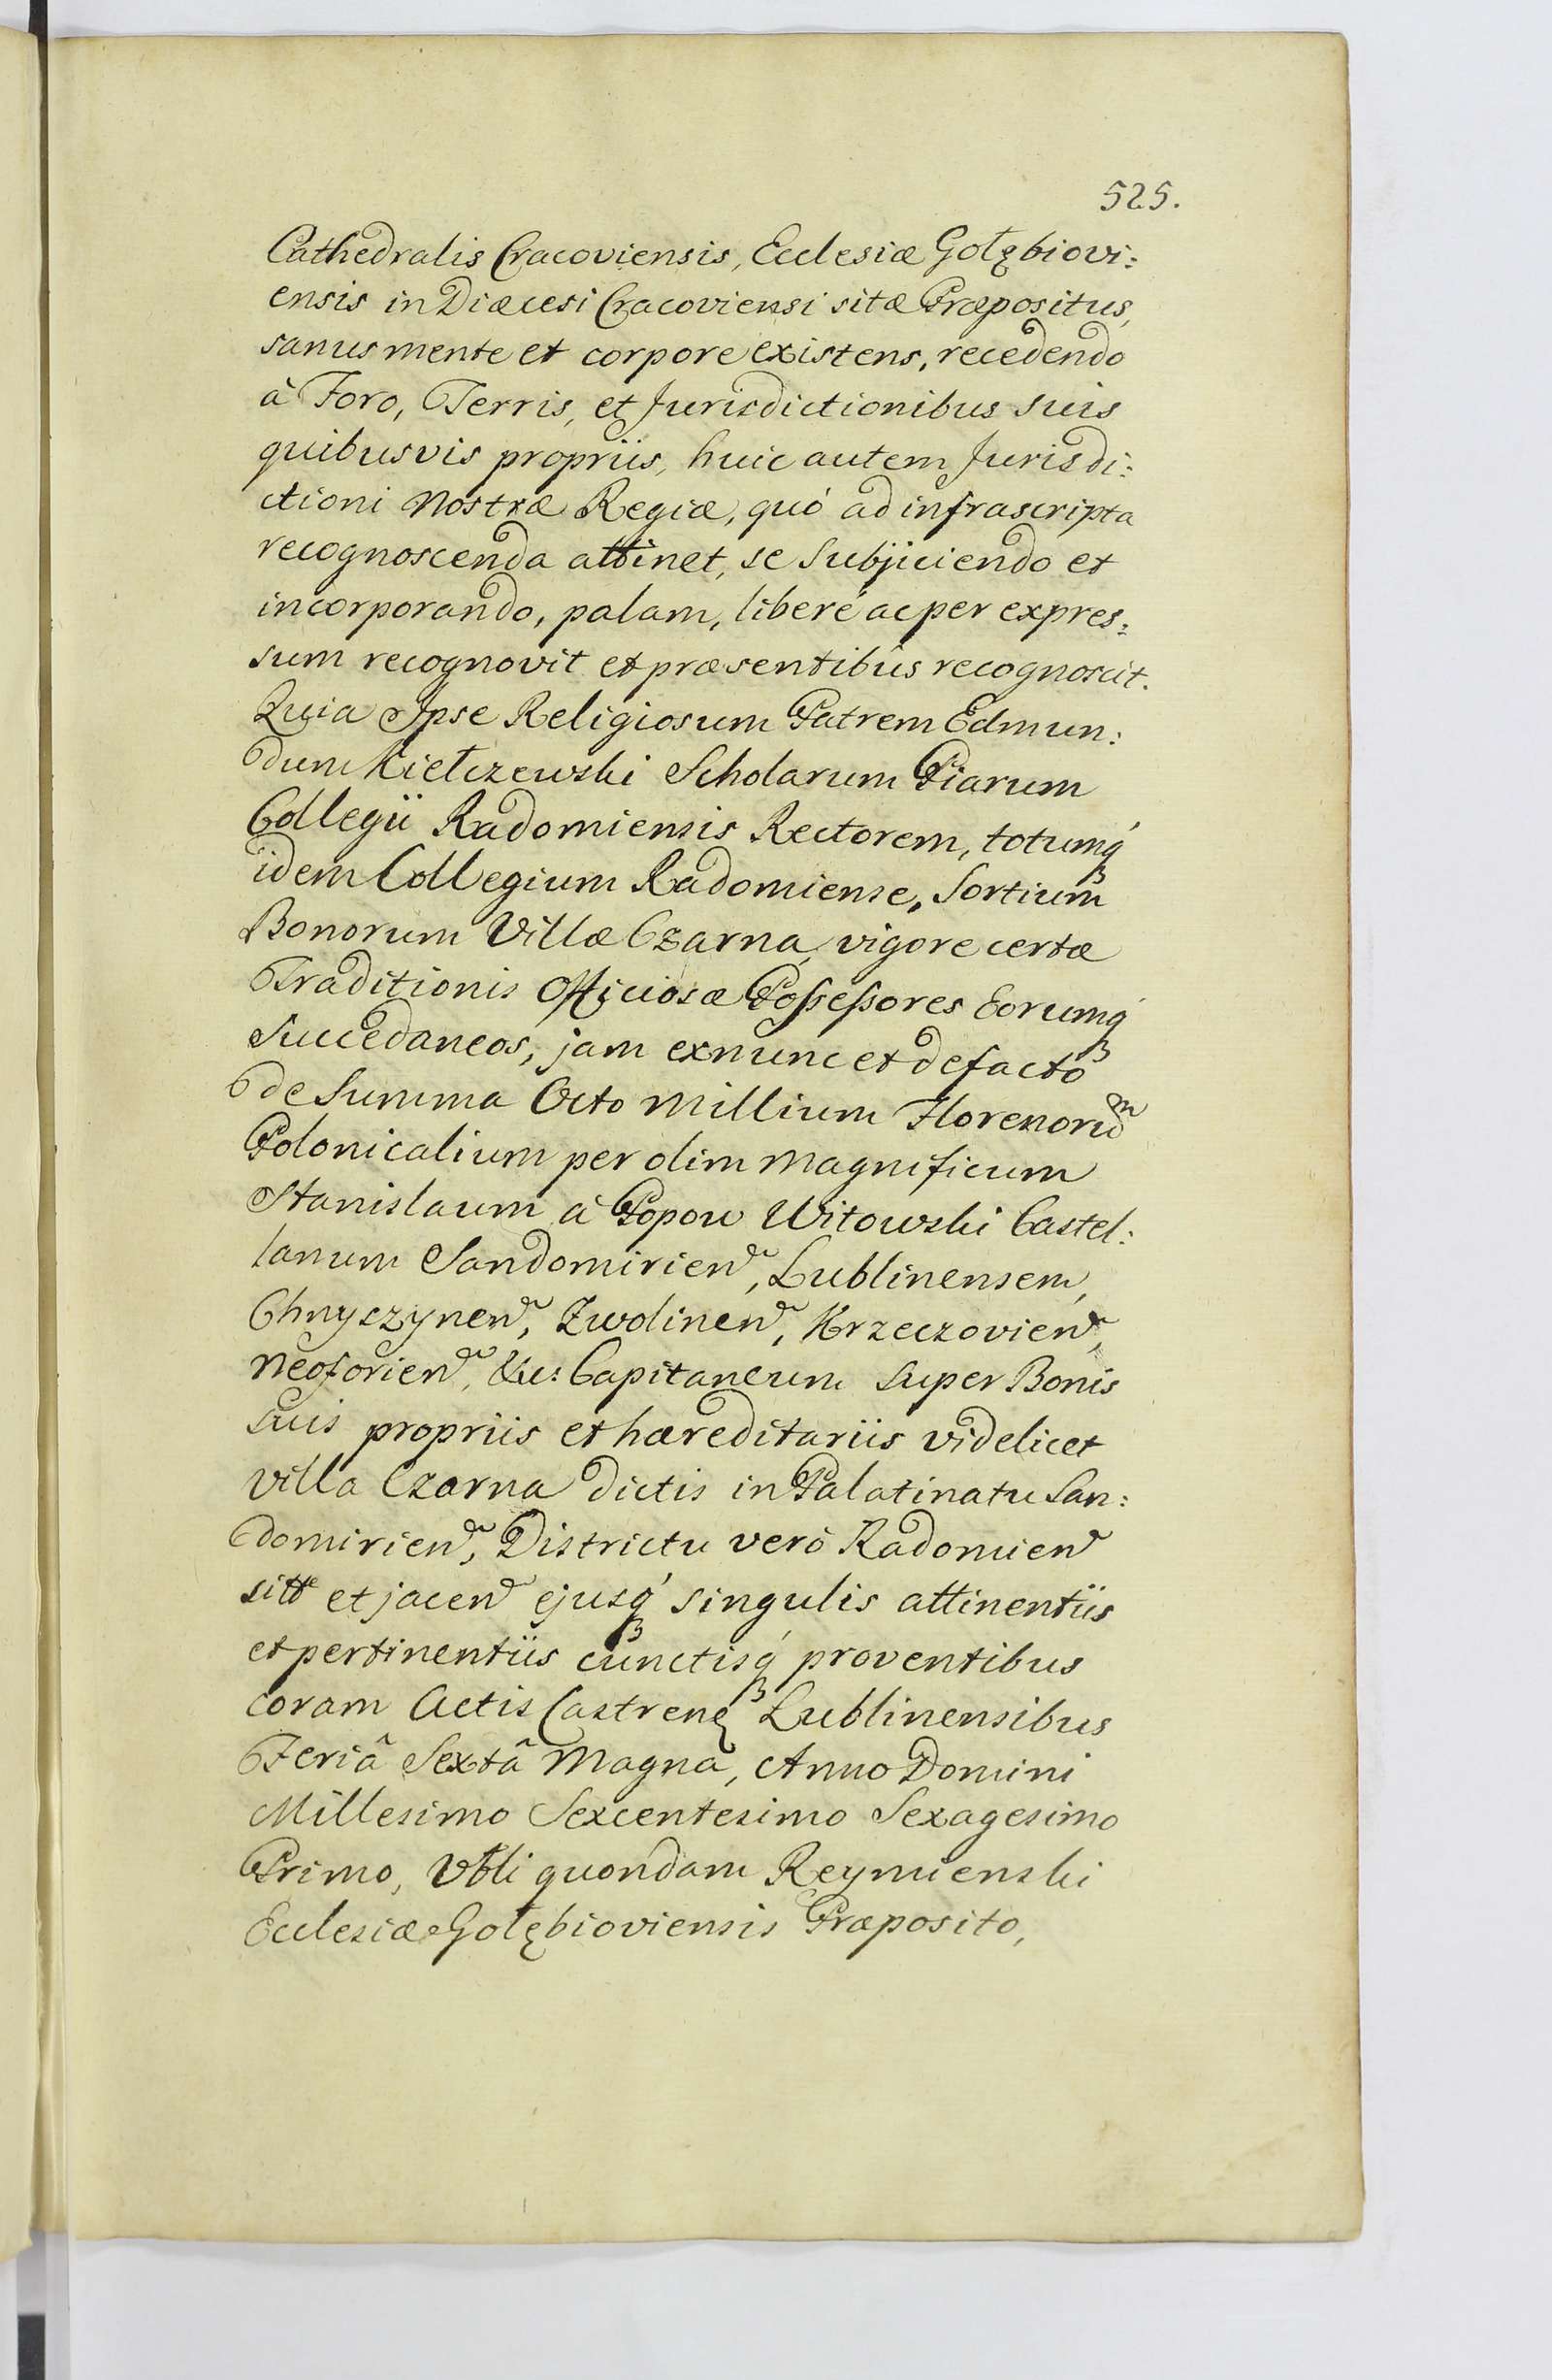 525.
Cathedralis Cracoviensis, Ecclesiæ Gołębiovi:
ensis in Diæcesi Cracoviensi sitæ Præpositus,
sanus mente et corpore existens, recedendo
à Foro, Terris, et Jurisdictionibus suis
quibusvis propriis, huic autem Jurisdi:
ctioni Nostræ Regiæ, quó ad infrascripta
recognoscenda attinet, se subjiciendo et
incorporando, palam, liberé ac per expres:
sum recognovit et præsentibûs recognoscit.
Quia Ipse Religiosum Patrem Edmun:
dum Kiełczewski Scholarum Piarum
Collegii Radomiensis Rectorem, totumq́ꝫ
idem Collegium Radomiense, Sortium
Bonorum Villæ Czarna, vigore certæ
Traditionis Officiosæ Possessores Eorumq́ꝫ
Succedaneos, jam exnunc et defacto
de Summa Octo Millium Florenorũm
Polonicalium per olim Magnificum
Stanislaum à Popow Witowski Castel:
lanum Sandomirien, Lublinensem,
Chnyszynen, Zwolinen, Krzeczovien,
Neoforien, &c: Capitaneum super Bonis
suis propriis et hæreditariis videlicet
villa Czarna dictis in Palatinatu San:
domirien, Districtu verò Radomien
sitt et jacen ejusq́ꝫ singulis attinentiis
et pertinentiis cunctisq́ꝫ proventibus
coram Actis Castren Lublinensibus
Feriâ Sextâ Magna, Anno Domini
Millesimo Sexcentesimo Sexagesimo
Primo, Vbli quondam Reymienski
Ecclesiæ Gołębioviensis Præposito,